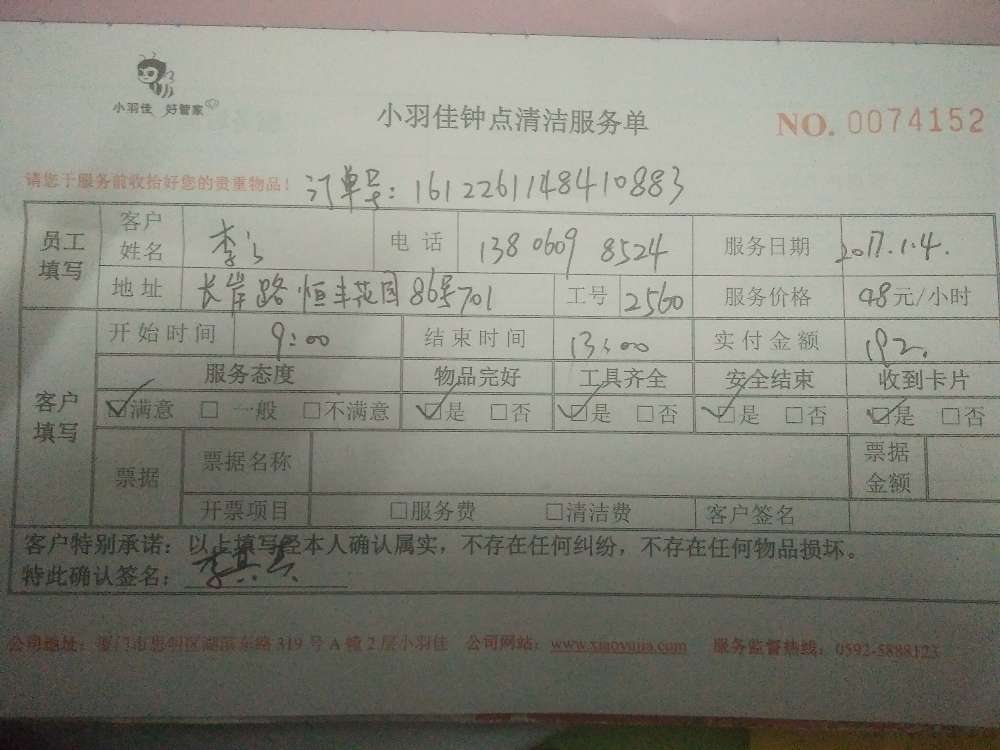 小羽佳 好管家
小羽佳钟点清洁服务单
NO. 0074152
请您于服务前收拾好您的贵重物品！ 订单号：161226114841 0883
员工填写 客户姓名 李 电话 138 0609 8524 服务日期 2017.1.4.
地址 长岸路恒丰花园86号701 工号 2560 服务价格 48元/小时
客户填写 开始时间 9:00 结束时间 13:00 实付金额 192.
服务态度 物品完好 工具齐全 安全结束 收到卡片
☑满意 □一般 □不满意 ☑是 □否 ☑是 □否 ☑是 □否 ☑是 □否
票据 票据名称 票据金额
开票项目 □服务费 □清洁费 客户签名
客户特别承诺：以上填写经本人确认属实，不存在任何纠纷，不存在任何物品损坏。
特此确认签名：李
公司地址：厦门市思明区湖滨东路319号A幢2层小羽佳 公司网站：www.xiaoyujia.com 服务监督热线：0592-5888123